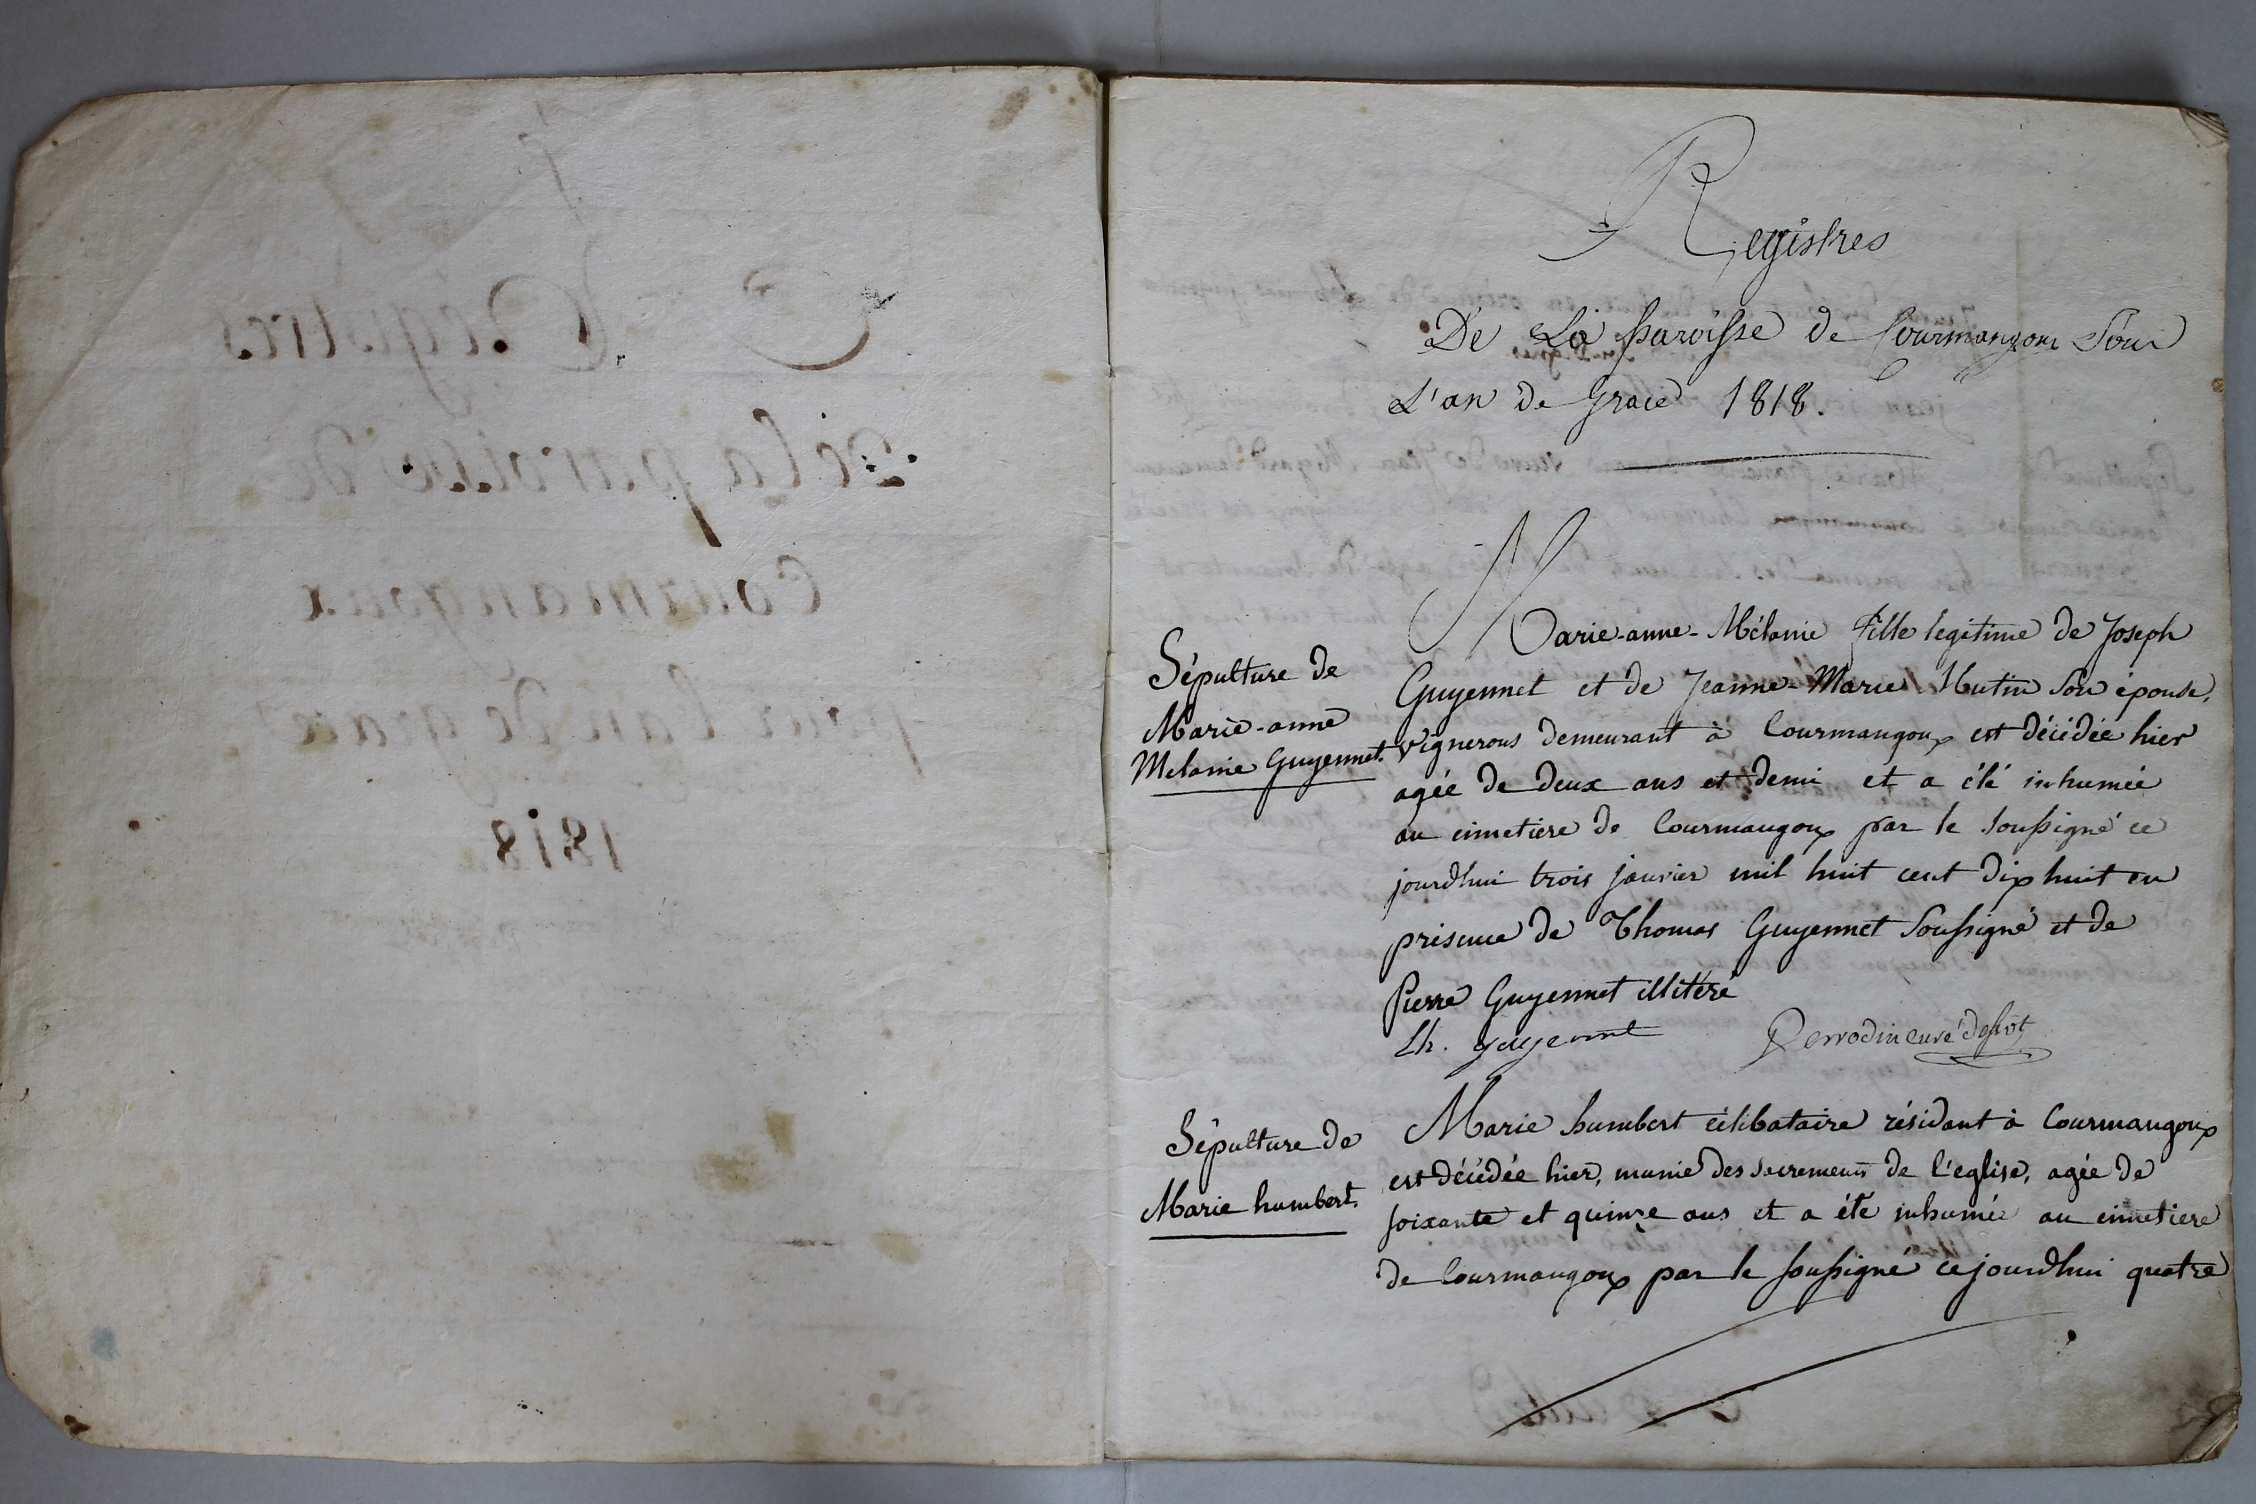 Registres
De la paroisse de
Courmangoux
pour l'an de grace
1818
Registres
De La paroisse de Courmangoux Pour
L'an de Grace 1818.
Sépulture de
Marie-anne
Melanie Guyennet.
Marie-anne-Mélanie fille legitime de Joseph
Guyennet et de Jeanne-Marie Hutin son épouse,
vignerons demeurant à Courmangoux est décédée hier
agée de deux ans et demi et a été inhumée
au cimetiere de Courmangoux par le soussigné ce
jourdhui trois janvier mil huit cent dix huit en
présence de Thomas Guyennet soussigné et de
Pierre Guyennet illitéré
th. guyennet Perrodin curé desst
Sépulture de
Marie humbert.
Marie humbert célibataire résidant à Courmangoux
est décédée hier, munie des sacrements de l'eglise, agée de
soixante et quinze ans et a été inhumée au cimetiere
de Courmangoux par le soussigné ce jourdhui quatre